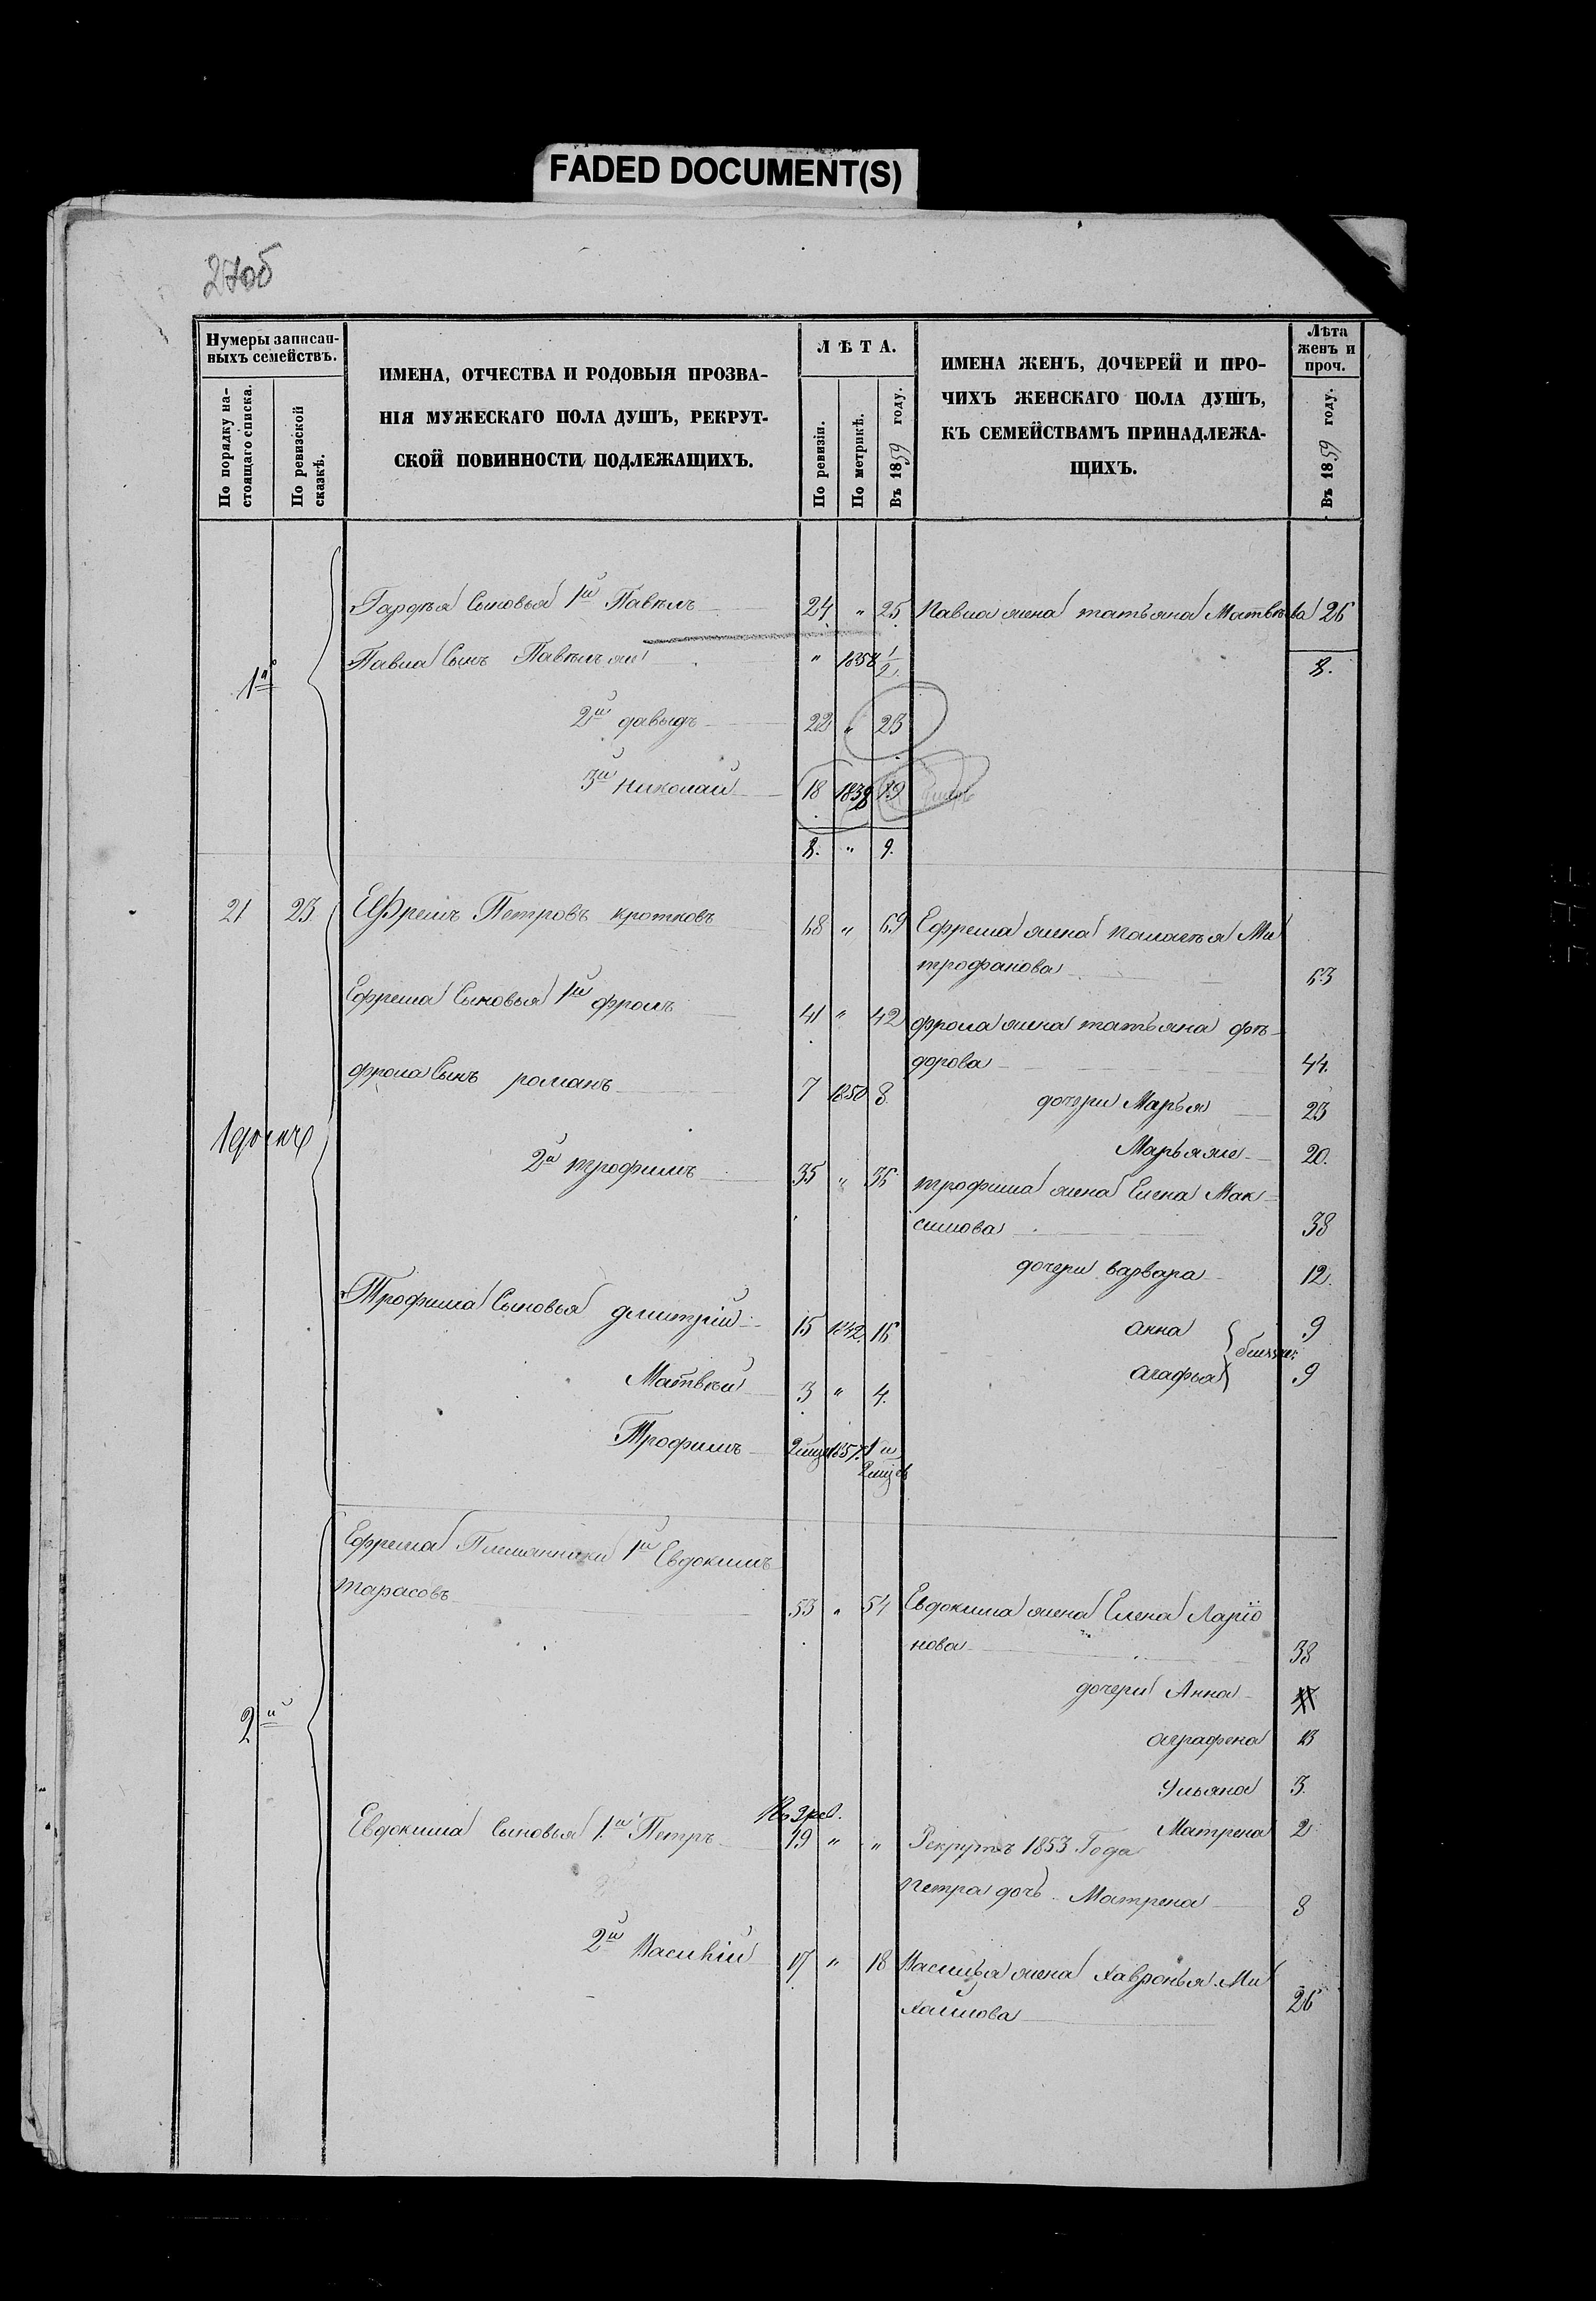 FADED DOCUMENT(S)
270б
Нумеры записан-
ныхъ семействъ.
По порядку на-
стоящаго списка.
По ревизской
сказкѣ.
ИМЕНА, ОТЧЕСТВА И РОДОВЫЯ ПРОЗВА-
НІЯ МУЖЕСКАГО ПОЛА ДУШЪ, РЕКРУТ-
СКОЙ ПОВИННОСТИ ПОДЛЕЖАЩИХЪ.
ЛѢТА.
По ревизіи.
По метрикѣ.
Въ 1859 году.
ИМЕНА ЖЕНЪ, ДОЧЕРЕЙ И ПРО-
ЧИХЪ ЖЕНСКАГО ПОЛА ДУШЪ,
КЪ СЕМЕЙСТВАМЪ ПРИНАДЛЕЖА-
ЩИХЪ.
Лѣта
женъ и
проч.
Въ 1859 году.
1й
Гордѣя Сыновья 1й Павелъ 24 " 25 Павла жена татьяна Матвѣева 26
Павла Сынъ Павелъ же " 1858 1/2 8.
2й давыдъ 22 " 23
3й Николай 18 1838 19
8. " 9.
21 23 Ефремъ Петровъ кротковъ 68 " 69 Ефрема жена Паласья Ми
трофанова 63
Ефрема Сыновья 1й фролъ 41 " 42 фрола жена татьяна фѣ-
дорова 44.
фрола Сынъ романъ 7 1850 8 дочери Марья 23
Марья же 20.
2й трофимъ 35 " 36 трофима жена Елена Мак-
симова 38
дочери варвара 12.
Трофима Сыновья дмитрій 15 1842. 16 анна 9
Матвѣй 3 " 4. агафья 9
Трофимъ 2 1857. 1 и
Ефрема Племянники 1й Евдокимъ
тарасовъ 53 " 54 Евдокима жена Елена Ларіо
нова 38
дочери Анна
аграфена 13
Ульяна 3
Матрена 2
2й
Евдокима Сыновья 1й Петръ 19 " " Рекрутъ 1853 Года
Петра дочь Матрена 8
2й Василій 17 " 18 Василья жена Хавронья Ми
хайлова 26